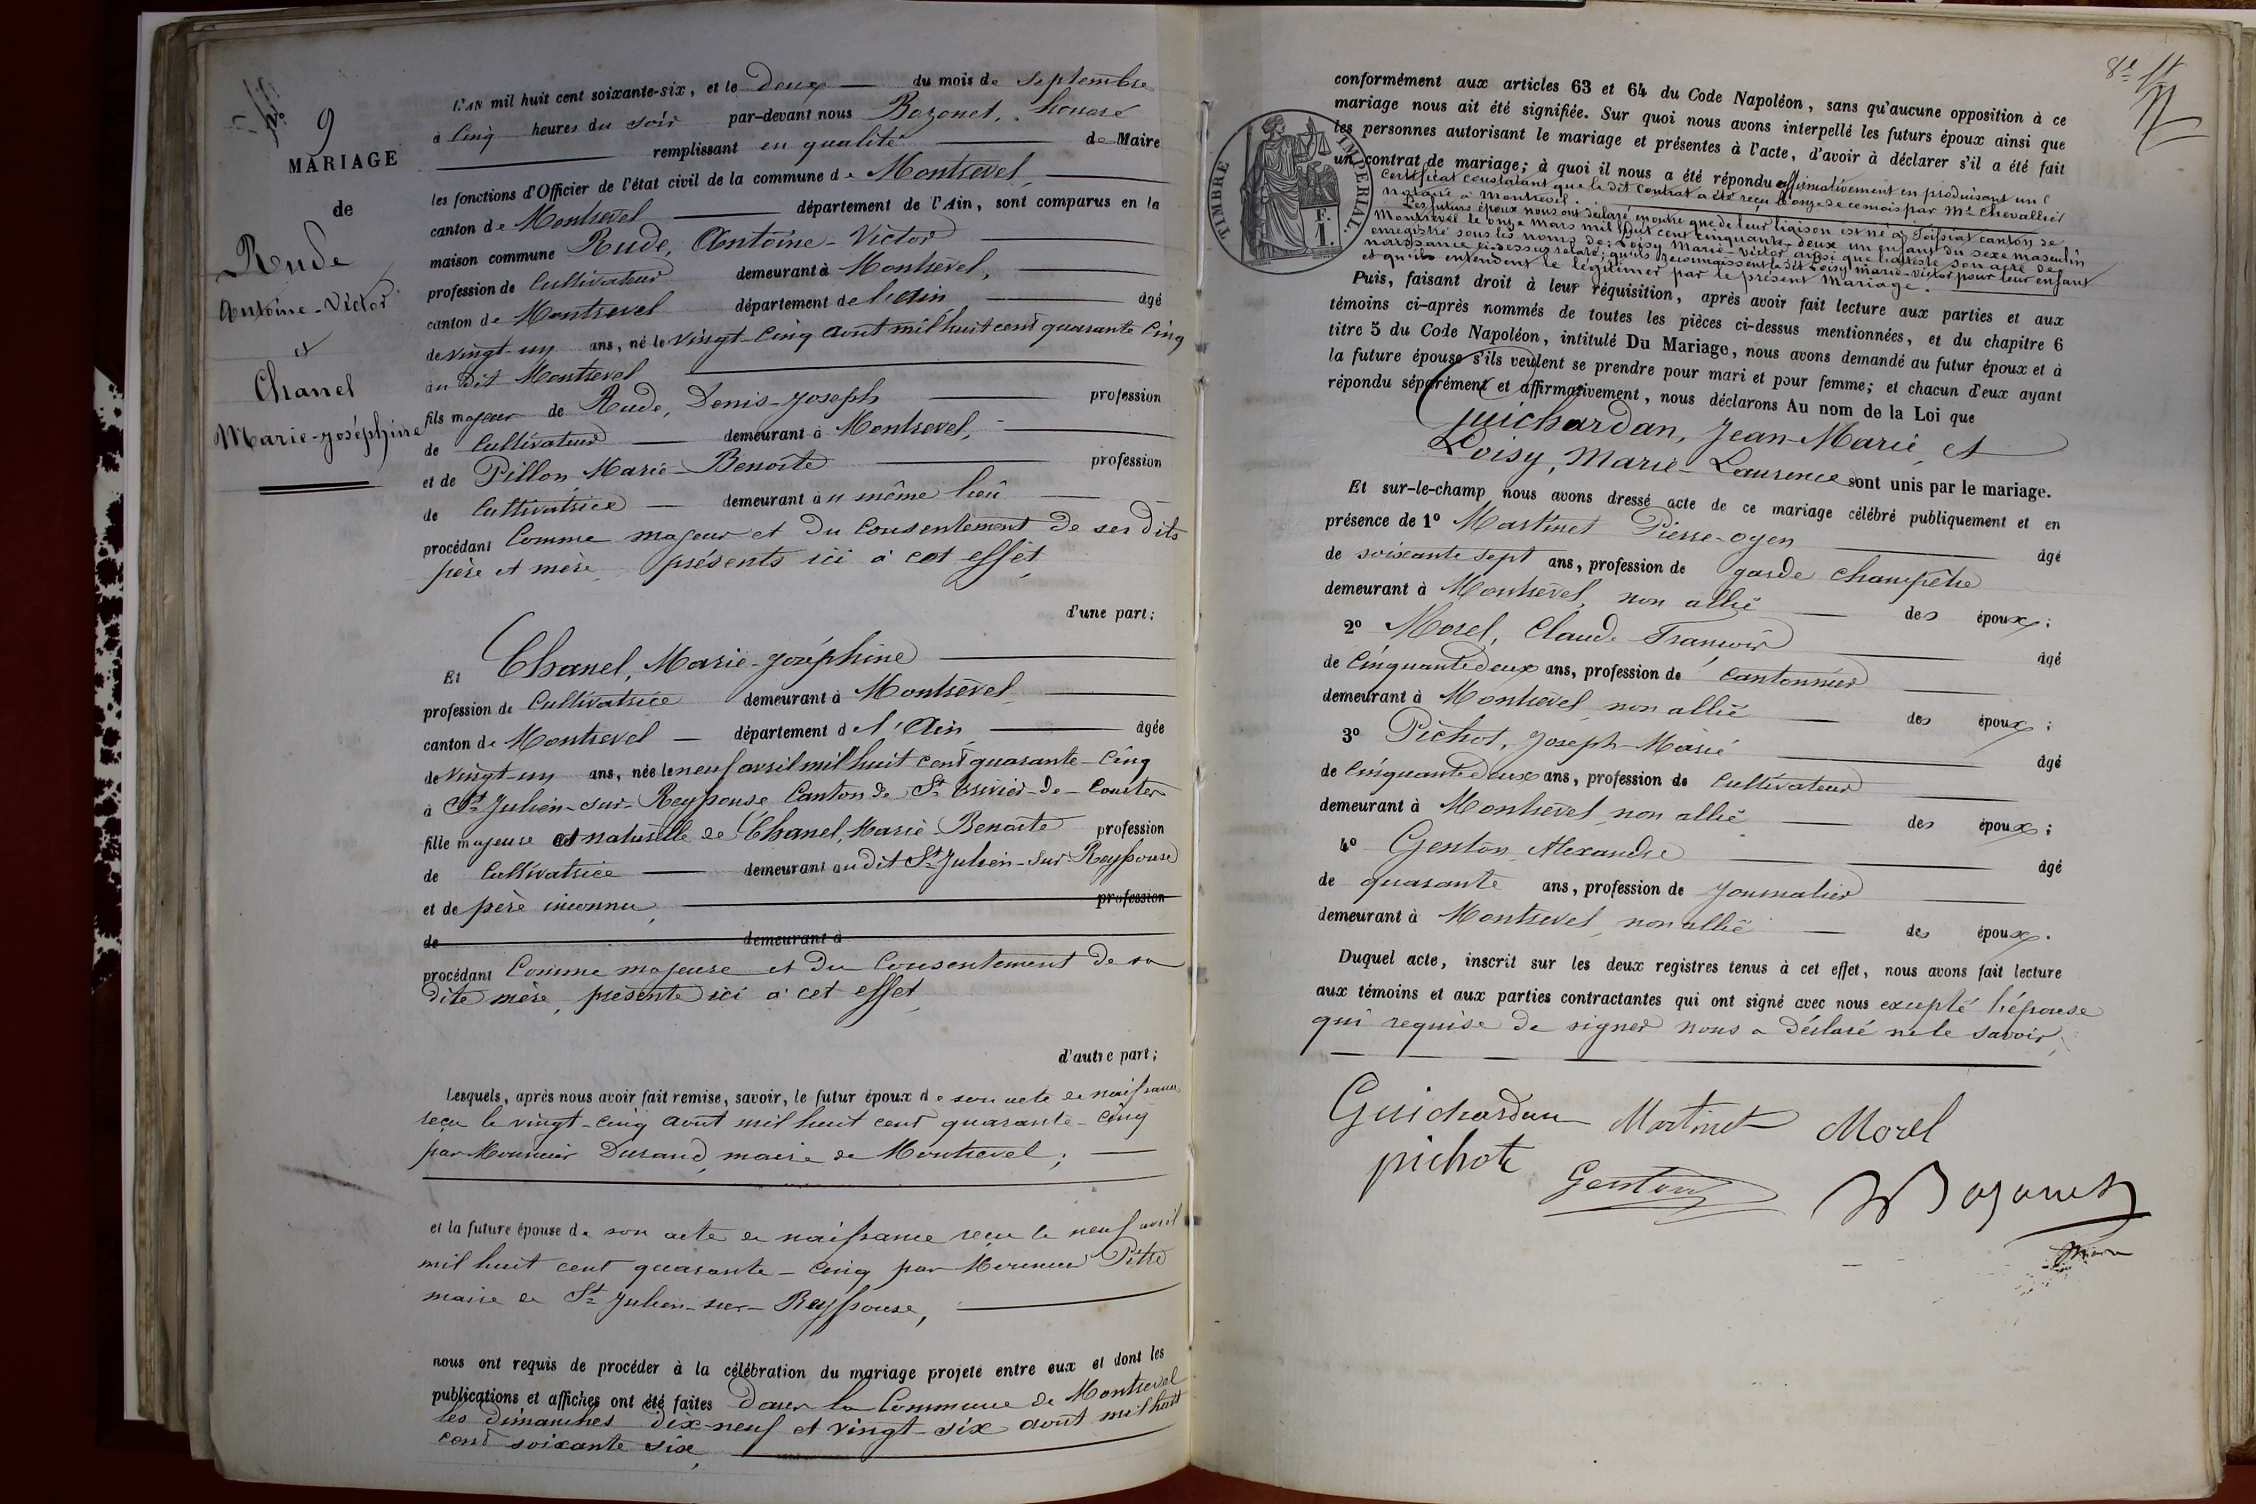 9
MARIAGE
de
Rude
Antoine-Victor
et
Chanel
Marie-Joséphine
L'AN mil huit cent soixante-six, et le Deux du mois de Septembre
à Cinq heures du soir par-devant nous Bozonet, honoré
remplissant en qualité de Maire
les fonctions d'Officier de l'état civil de la commune de Montrevel,
canton de Montrevel département de l'Ain, sont comparus en la
maison commune Rude, Antoine-Victor
profession de Cultivateur demeurant à Montrevel,
canton de Montrevel département de l'Ain âgé
de vingt-un ans, né le vingt-cinq août mil huit cent quarante cinq
au dit Montrevel
fils majeur de Rude, Denis-Joseph profession
de Cultivateur demeurant à Montrevel,
et de Pillon, Marie-Benoîte profession
de Cultivatrice demeurant au même lieu
procédant Comme majeur et du Consentement de ses dits
père et mère, présents ici à cet effet,
d'une part;
Et Chanel, Marie-Joséphine
profession de Cultivatrice demeurant à Montrevel,
canton de Montrevel département de l'Ain, âgée
de vingt-un ans, née le neuf avril mil huit cent quarante-cinq
à St Julien-sur-Reyssouse Canton de St Trivier-de-Courtes
fille majeure et naturelle de Chanel, Marie-Benoîte profession
de Cultivatrice demeurant au dit St Julien-sur-Reyssouse
et de père inconnu, profession
de demeurant à
procédant Comme majeure et du Consentement de sa
dite mère, présente ici à cet effet,
d'autre part;
Lesquels, après nous avoir fait remise, savoir, le futur époux de son acte de naissance
reçu le vingt-cinq août mil huit cent quarante-cinq
par Monsieur Durand, maire de Montrevel;
et la future épouse de son acte de naissance reçu le neuf avril
mil huit cent quarante-cinq par Monsieur Pitre
maire de St Julien-sur-Reyssouse,
nous ont requis de procéder à la célébration du mariage projeté entre eux et dont les
publications et affiches ont été faites dans la Commune de Montrevel
les dimanches dix-neuf et vingt-six août mil huit
cent soixante six,
8e
TIMBRE IMPERIAL.
F.
1.
conformément aux articles 63 et 64 du Code Napoléon, sans qu'aucune opposition à ce
mariage nous ait été signifiée. Sur quoi nous avons interpellé les futurs époux ainsi que
les personnes autorisant le mariage et présentes à l'acte, d'avoir à déclarer s'il a été fait
un contrat de mariage; à quoi il nous a été répondu affirmativement en produisant un
Certificat constatant que le dit Contrat a été reçu le onze de ce mois par Me Chevallier
notaire à Montrevel.
Les futurs époux nous ont déclaré en outre que de leur liaison est né à Foissiat canton de
Montrevel le onze Mars mil huit cent cinquante-deux un enfant du sexe masculin
enregistré sous les noms de: Loisy Marie-Victor ainsi que l'atteste son acte de
naissance ci-dessus relaté; qu'ils reconnaissent le dit Loisy Marie-Victor pour leur enfant
et qu'ils entendent le légitimer par le présent Mariage.
Puis, faisant droit à leur réquisition, après avoir fait lecture aux parties et aux
témoins ci-après nommés de toutes les pièces ci-dessus mentionnées, et du chapitre 6
titre 5 du Code Napoléon, intitulé Du Mariage, nous avons demandé au futur époux et à
la future épouse s'ils veulent se prendre pour mari et pour femme; et chacun d'eux ayant
répondu séparément et affirmativement, nous déclarons Au nom de la Loi que
Guichardan, Jean-Marie, et
Loisy, Marie-Laurence sont unis par le mariage.
Et sur-le-champ nous avons dressé acte de ce mariage célébré publiquement et en
présence de 1o Martinet Pierre-oyen âgé
de soixante sept ans, profession de garde champêtre
demeurant à Montrevel, non allié des époux;
2o Morel, Claude-François âgé
de Cinquante deux ans, profession de Cantonnier
demeurant à Montrevel, non allié des époux;
3o Pichot, Joseph-Marie âgé
de Cinquante deux ans, profession de Cultivateur
demeurant à Montrevel, non allié des époux;
4o Genton Alexandre âgé
de quarante ans, profession de Journalier
demeurant à Montrevel, non allié des époux.
Duquel acte, inscrit sur les deux registres tenus à cet effet, nous avons fait lecture
aux témoins et aux parties contractantes qui ont signé avec nous excepté l'épouse
qui requise de signer nous a déclaré ne le savoir,
Guichardan Martinet Morel
pichot Genton Bozonet
Maire